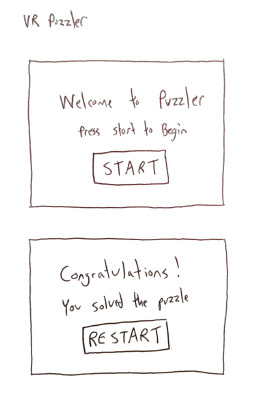 VR Puzzler
Welcome to Puzzler
press start to Begin
START
Congratulations!
You solved the puzzle
RESTART